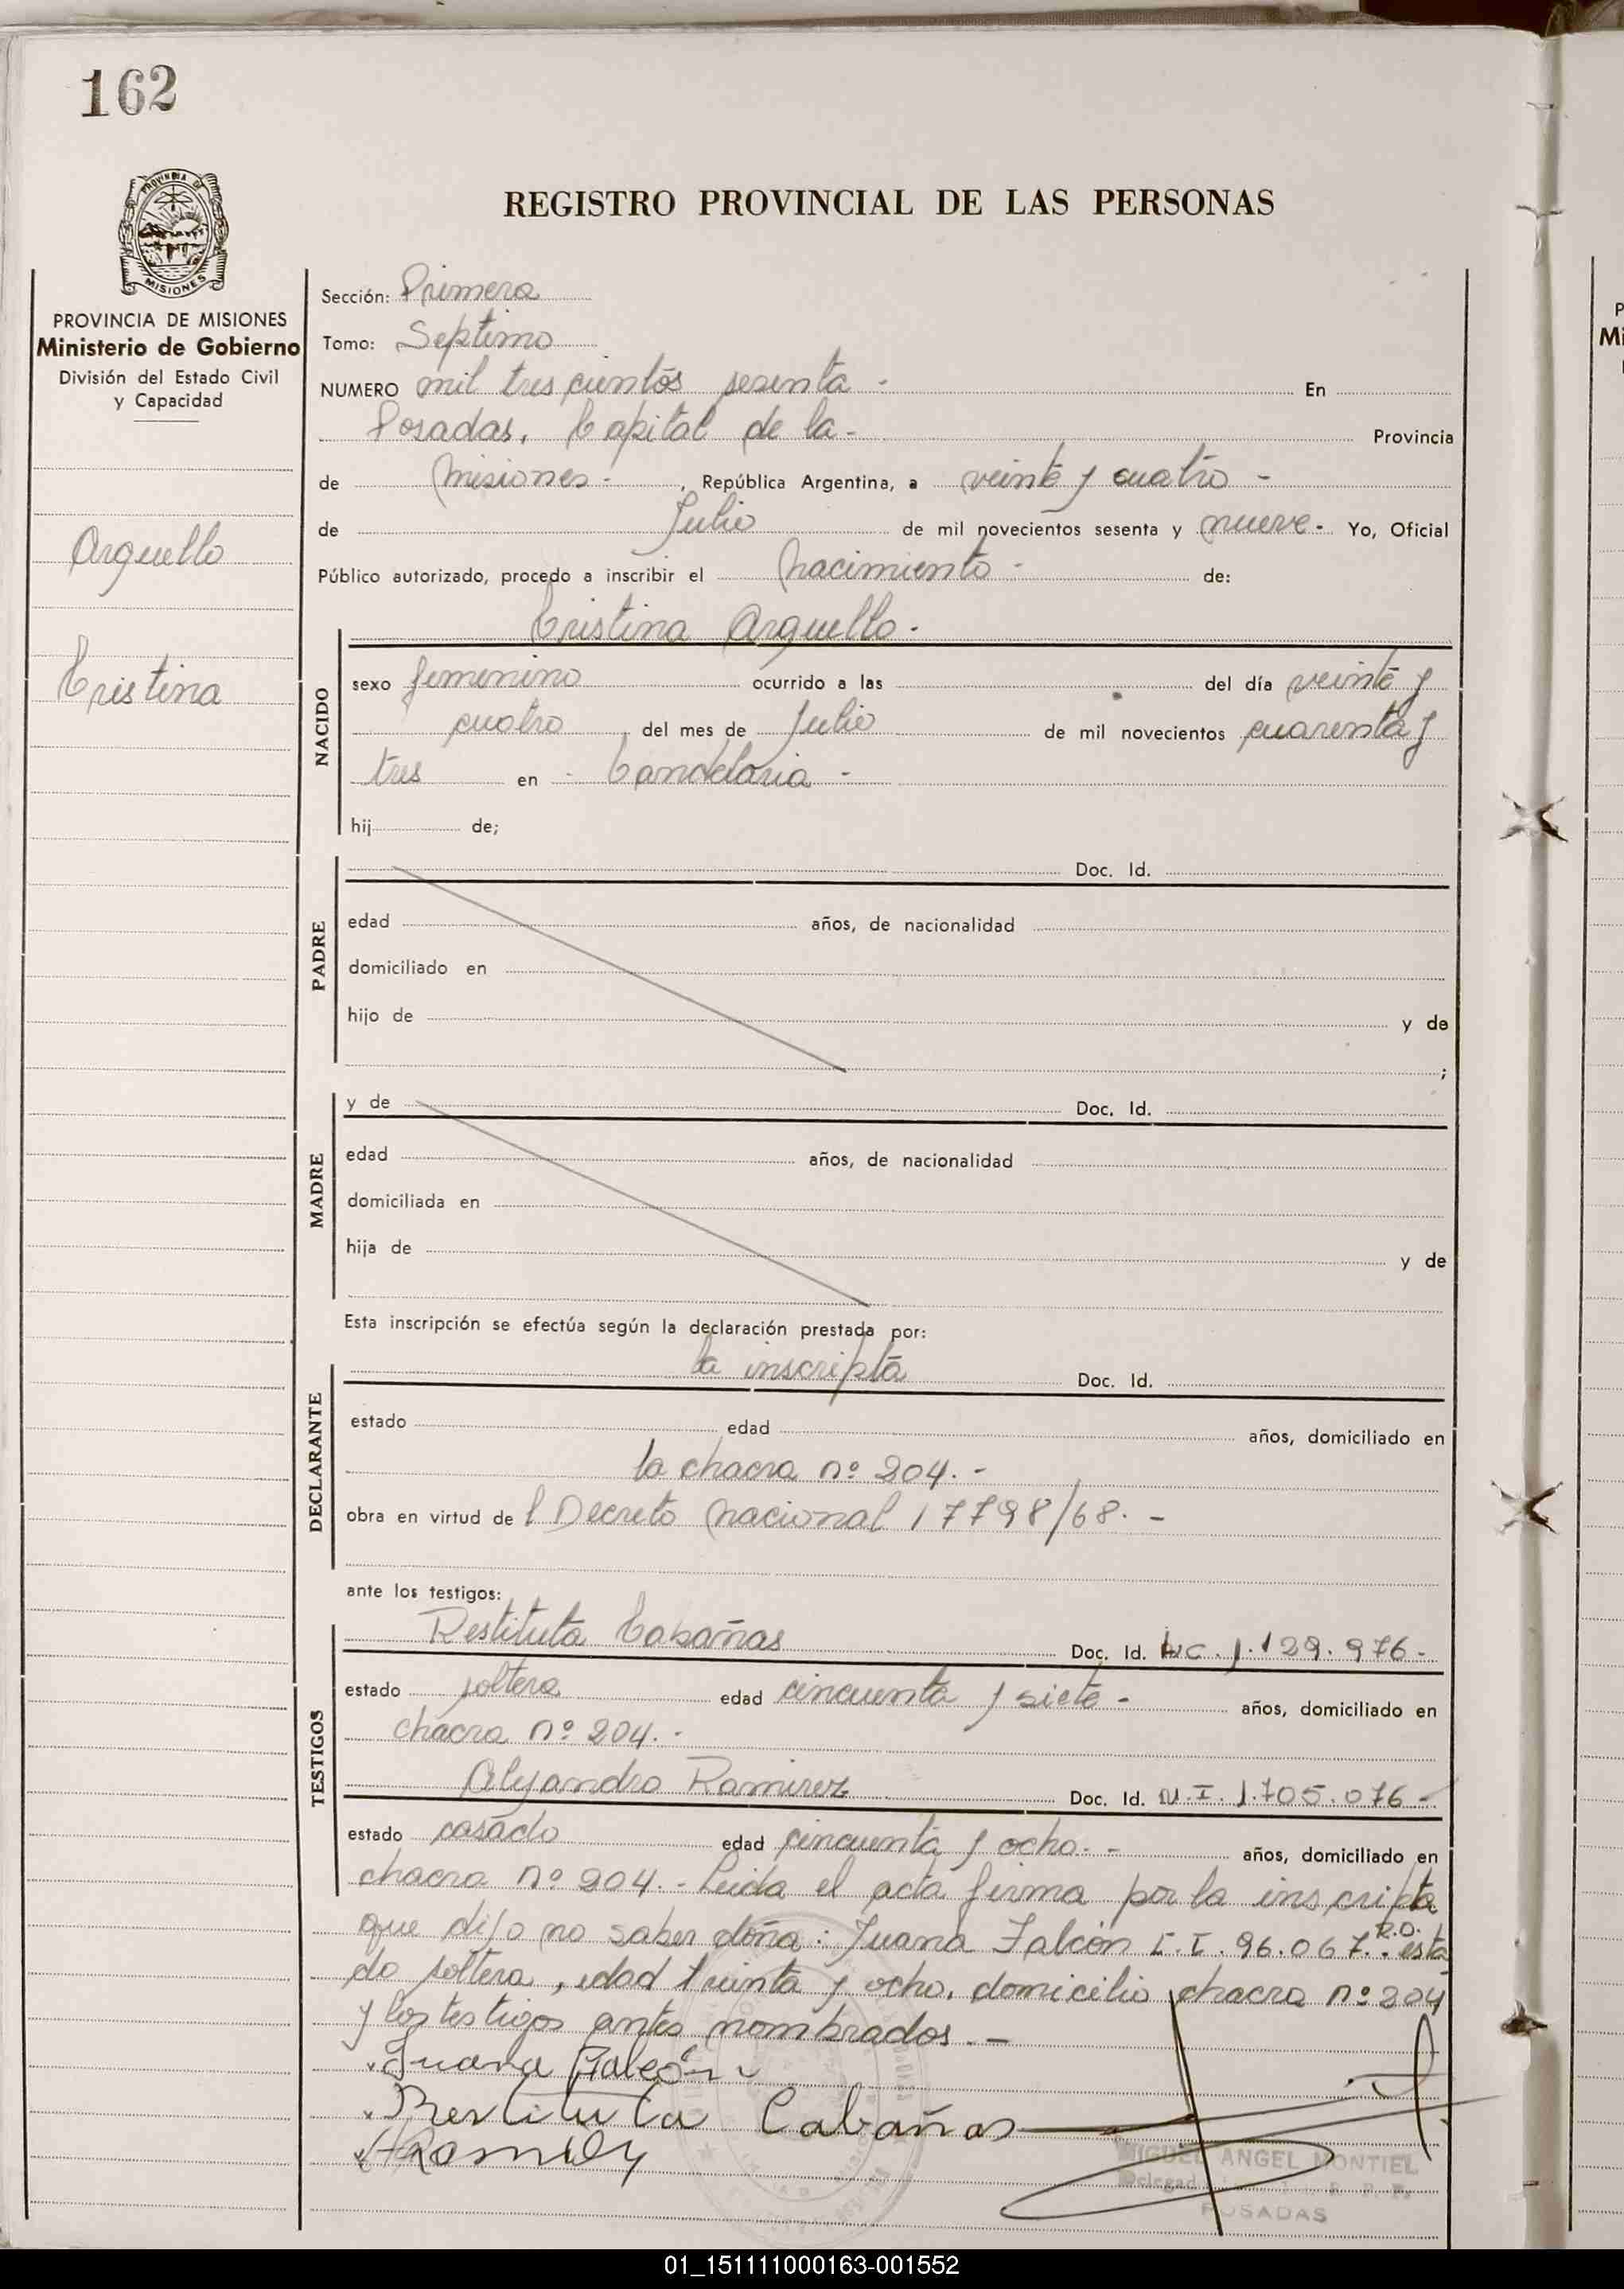 162
PROVINCIA DE
MISIONES
REGISTRO PROVINCIAL DE LAS PERSONAS
PROVINCIA DE MISIONES
Ministerio de Gobierno
División del Estado Civil
y Capacidad
Arguello
Cristina
Sección: Primera
Tomo: Septimo
NUMERO mil trescientos sesenta - En
Posadas, Capital de la - Provincia
de Misiones - , República Argentina, a veinte y cuatro -
de Julio de mil novecientos sesenta y nueve - Yo, Oficial
Público autorizado, procedo a inscribir el nacimiento - de:
Cristina Arguello -
NACIDO
sexo femenino ocurrido a las del día veinte y
cuatro del mes de Julio de mil novecientos cuarenta y
tres en - Candelaria -
hij de;
PADRE
Doc. Id.
edad años, de nacionalidad
domiciliado en
hijo de y de
;
MADRE
y de Doc. Id.
edad años, de nacionalidad
domiciliada en
hija de y de
Esta inscripción se efectúa según la declaración prestada por:
DECLARANTE
la inscripta Doc. Id.
estado edad años, domiciliado en
la chacra nº 204. -
obra en virtud de l Decreto Nacional 17798/68. -
ante los testigos:
TESTIGOS
Restituta Cabañas Doc. Id. LC. 1.129.976 -
estado soltera edad cincuenta y siete - años, domiciliado en
chacra nº 204. -
Alejandro Ramirez Doc. Id. M.I. 1.705.076 -
estado casado edad cincuenta y ocho. - años, domiciliado en
chacra nº 204. - Leida el acta firma por la inscripta
que dijo no saber doña: Juana Falcón C.I. 96.067. esta
do soltera, edad treinta y ocho, domicilio chacra nº 204
y los testigos antes nombrados. -
Juana Falcón
Restituta Cabañas
MIGUEL ANGEL MONTIEL
POSADAS
01_151111000163-001552